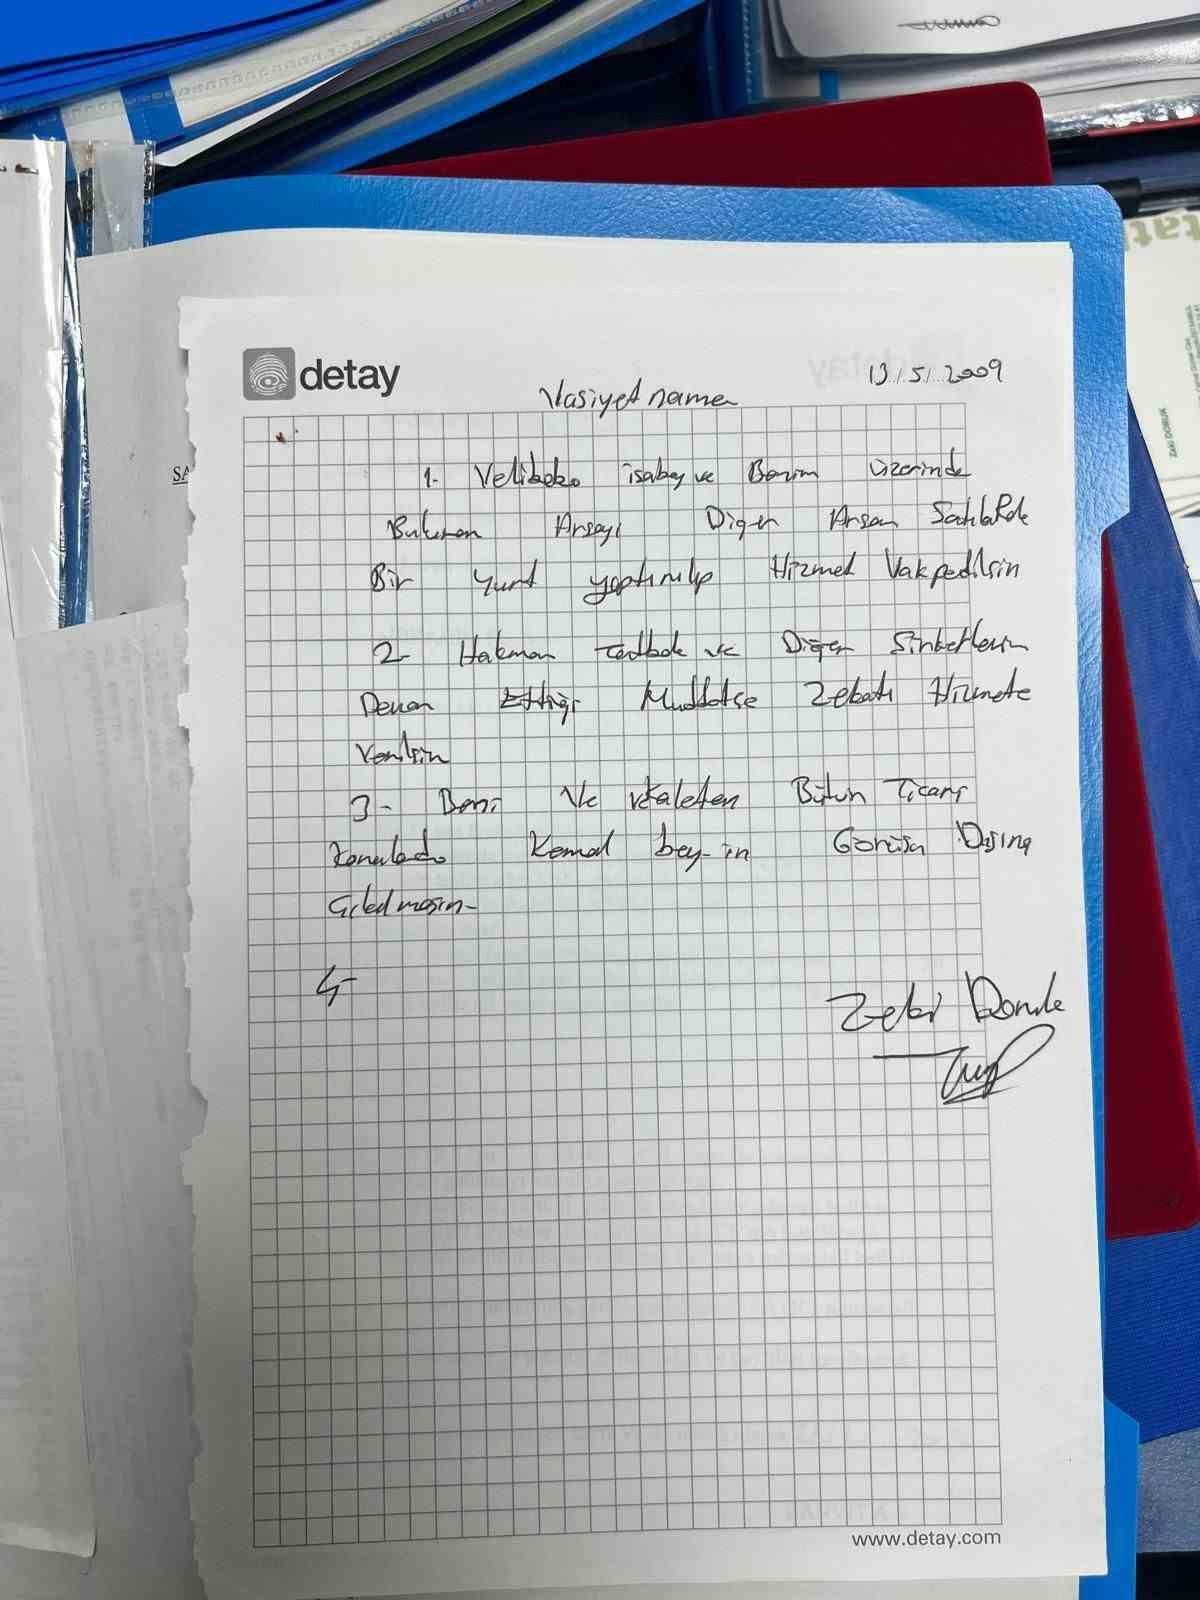 detay
13/5/2009
Vasiyetname
1- Velibaba isabey ve Benim üzerinde
Bulunan Arsayı Diğer Arsam Satılarak
Bir Yurt yaptırılıp Hizmet Vakfedilsin
2- Hakman ve Diğer Şirketlerin
Devam Ettiği Muddetçe Zekatı Hizmete
Verilsin
3- Beni Ve vekaleten Bütün Ticari
Konularda Kemal bey-in Görüşü Dışına
Çıkılmasın-
4-
Zeki Doruk
www.detay.com
SA
Zeki DORUK